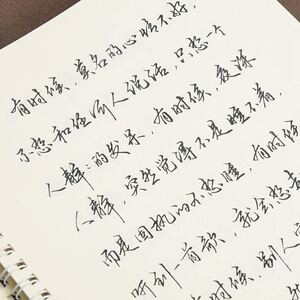 有时候，莫名的心情不好，
不想和任何人说话，只想一个
人静静的发呆，有时候，夜深
人静，突然觉得不是睡不着，
而是固执的不想睡，有时候
听到一首歌，就会想
时候，别人